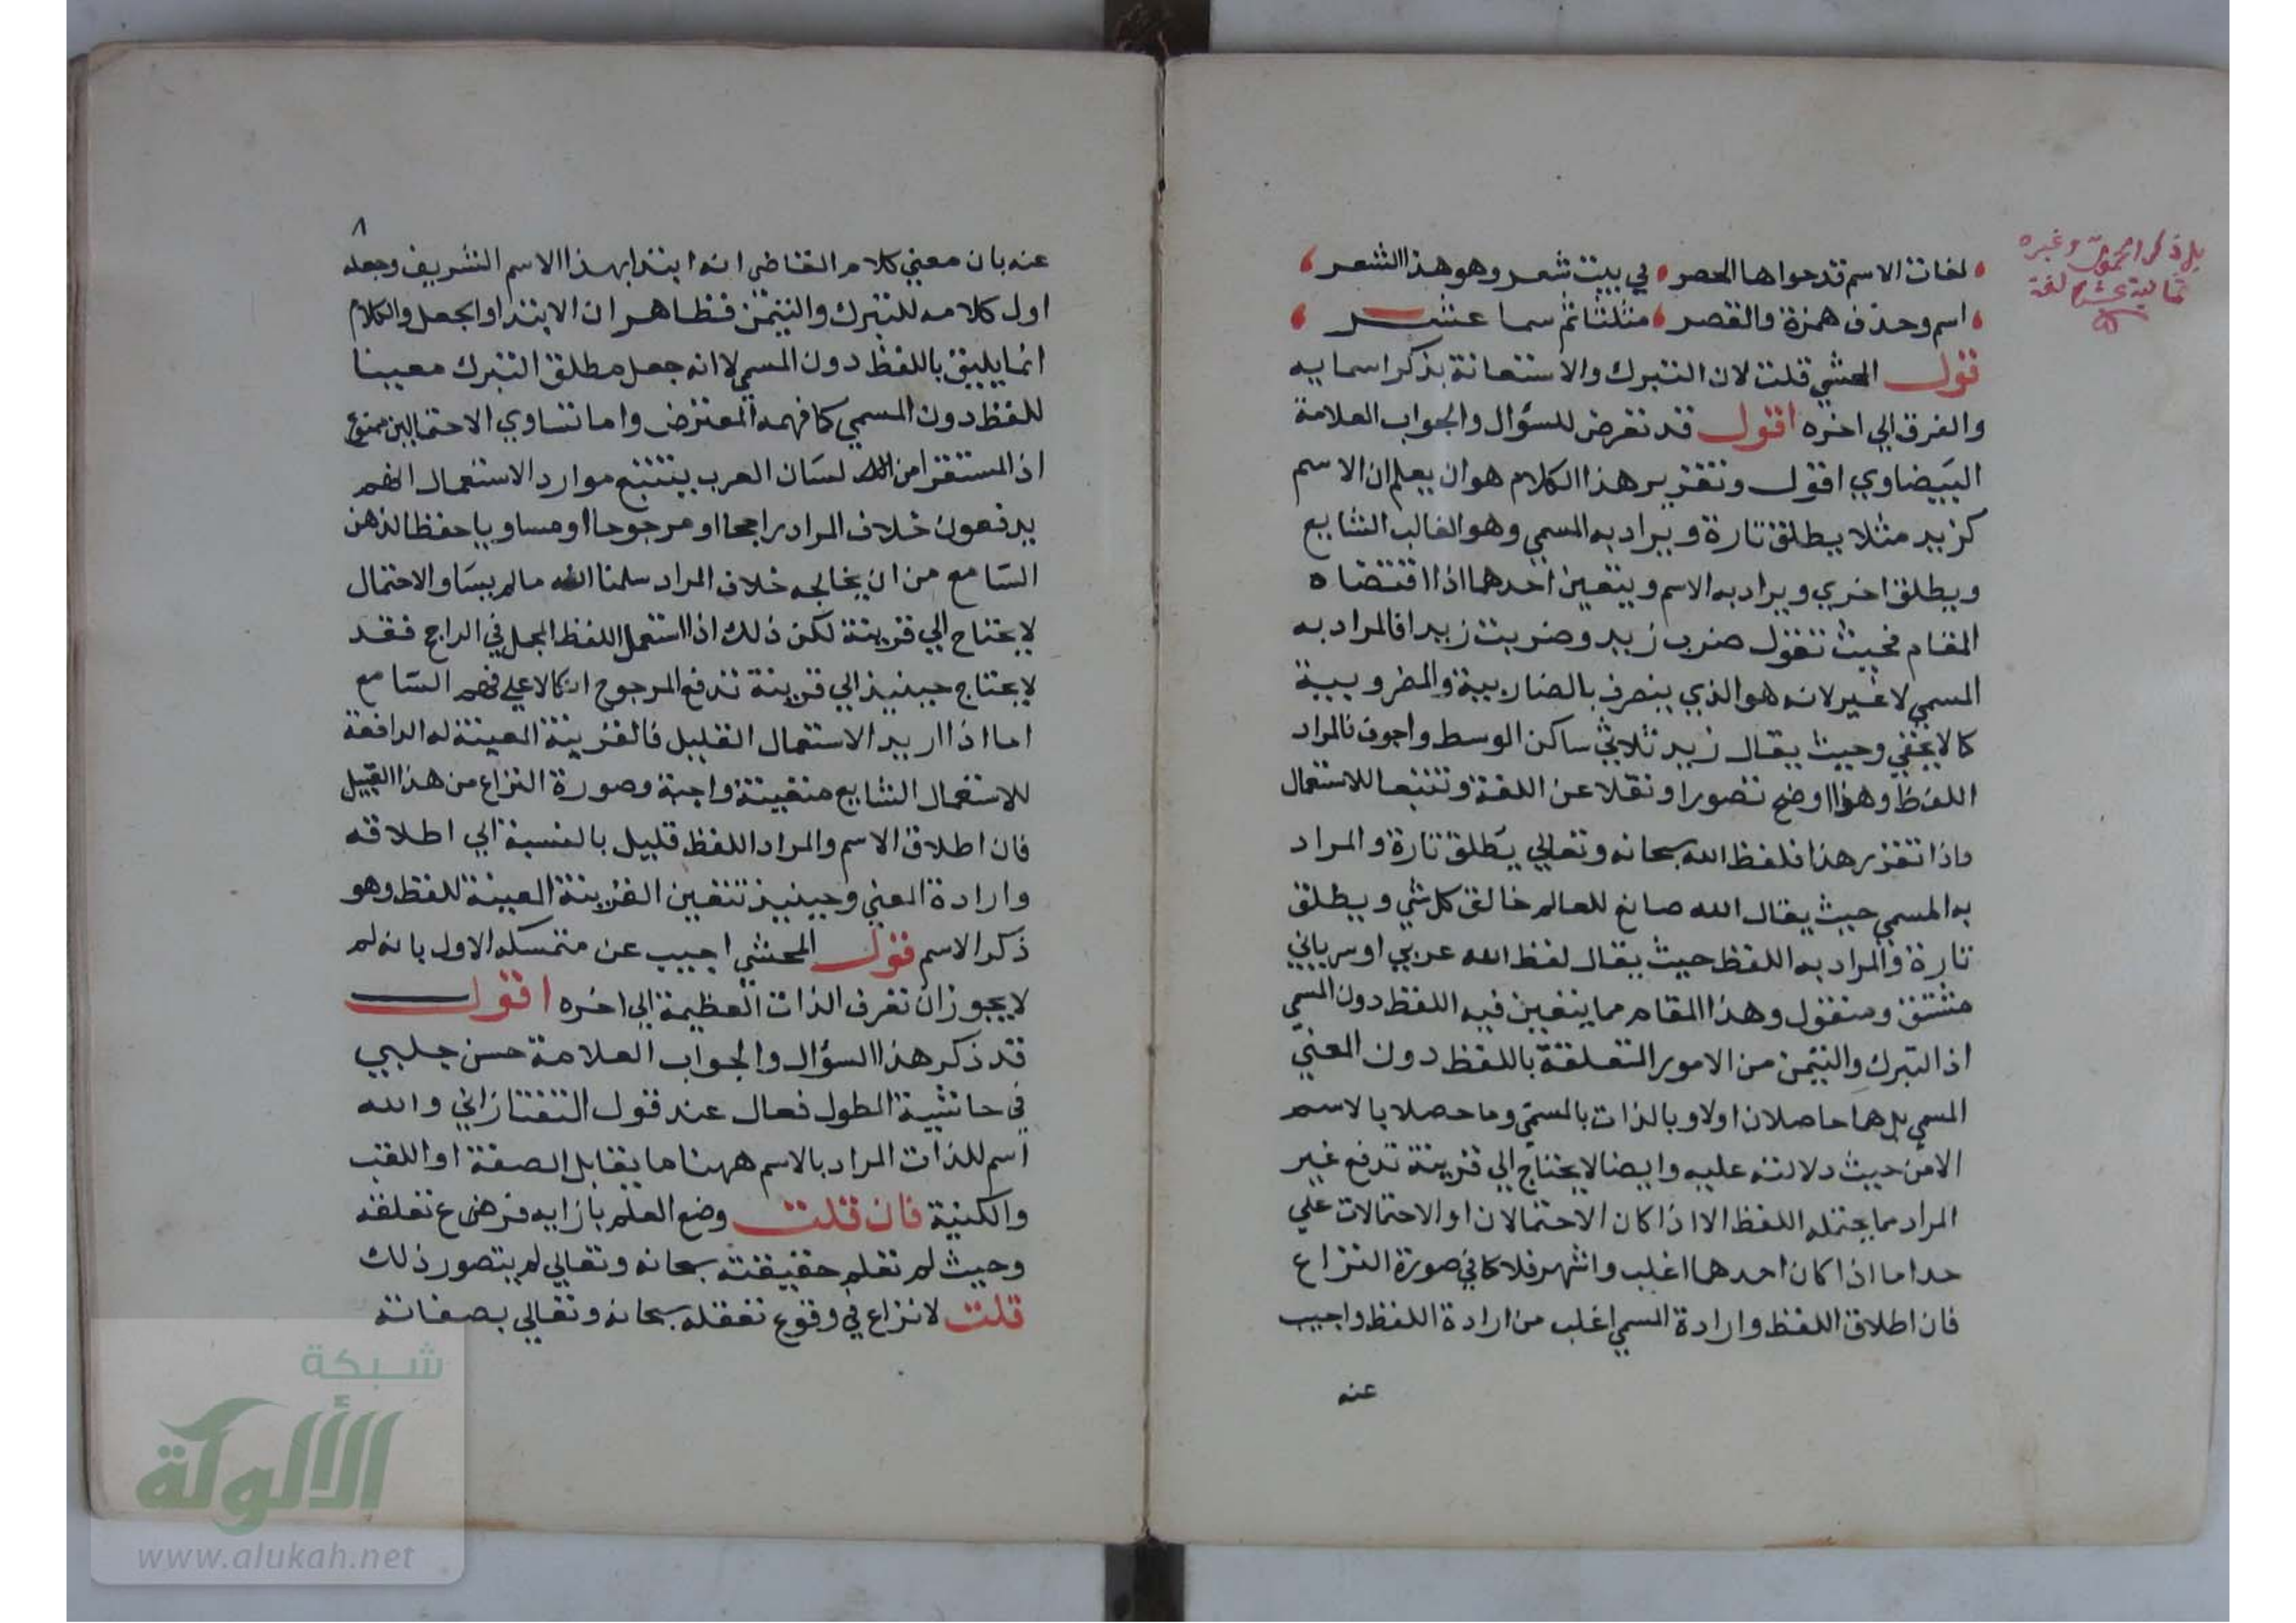 لغات الاسم قد حواها الحصر في بيت شعر وهو هذا الشعر
اسم وحذف همزة والقصر مثلثا ثم سما عشر
قول المحشي قلت لان التبرك والاستعانة بذكر اسمايه
والفرق الي اخره اقول قد تعرض للسؤال والجواب العلامة
البيضاوي اقول وتقرير هذا الكلام هو ان يعلم ان الاسم
كزيد مثلا يطلق تارة ويراد به المسمي وهو الغالب الشايع
ويطلق اخري ويراد به الاسم ويتعين احدهما اذا اقتضاه
المقام فحيث تقول ضرب زيد وضربت زيدا فالمراد به
المسمي لا غير لانه هو الذي يتصف بالضاربية والمضروبية
كما لا يخفي وحيث يقال زيد ثلاثي ساكن الوسط واجوف فالمراد
اللفظ وهذا اوضح تصورا ونقلا عن اللغة وتتبعا للاستعمال
واذا تقرر هذا فلفظ الله سبحانه وتعالي يطلق تارة والمراد
به المسمي حيث يقال الله صانع للعالم خالق كل شي ويطلق
تارة والمراد به اللفظ حيث يقال لفظ الله عربي او سرياني
مشتق ومنقول وهذا المقام مما يتعين فيه اللفظ دون المسمي
اذ التبرك والتيمن من الامور المتعلقة باللفظ دون المعني
المسمي بل هما حاصلان اولا وبالذات بالمسمي وما حصلا بالاسم
الا من حيث دلالته عليه وايضا لا يحتاج الي قرينة تدفع غير
المراد مما يحتمله اللفظ الا اذا كان الاحتمالان او الاحتمالات علي
حد اما اذا كان احدهما اغلب واشهر فلا كما في صورة النزاع
فان اطلاق اللفظ وارادة المسمي اغلب من ارادة اللفظ واجيب
عنه
بل ذكر وغيره
ثمانية عشر لغة
٨
عنه بان معني كلام القاضي انه ابتدا بهذا الاسم الشريف وجعله
اول كلامه للتبرك والتيمن فظاهر ان الابتدا والجعل والكلام
انما يليق باللفظ دون المسمي لا انه جعل مطلق التبرك معينا
للفظ دون المسمي كما فهمه المعترض واما تساوي الاحتمالين ممنوع
اذ المستقرا من لسان العرب يتتبع موارد الاستعمال انهم
يدفعون خلاف المراد راجحا او مرجوحا او مساويا حفظا لذهن
السامع من ان يخالجه خلاف المراد سلمنا انه مالم يساو الاحتمال
لا يحتاج الي قرينة لكن ذلك اذا استعمل اللفظ المجمل في الراجح فقد
لا يحتاج حينيذ الي قرينة تدفع المرجوح اتكالا علي فهم السامع
اما اذا اريد الاستعمال القليل فالقرينة المعينة له الدافعة
للاستعمال الشايع متعينة واجبة وصورة النزاع من هذا القبيل
فان اطلاق الاسم والمراد اللفظ قليل بالنسبة الي اطلاقه
وارادة المعني وحينيذ تتعين القرينة المعينة للفظ وهو
ذكر الاسم قول المحشي اجيب عن متمسكه الاول بانه لم
لا يجوز ان تعرف الذات العظيمة الي اخره اقول
قد ذكر هذا السؤال والجواب العلامة حسن جلبي
في حاشية المطول فقال عند قول التفتازاني والله
اسم للذات المراد بالاسم ههنا ما يقابل الصفة او اللقب
والكنية فان قلت وضع العلم بازايه فرع تعلقه
وحيث لم تعلم حقيقته سبحانه وتعالي لم يتصور ذلك
قلت لا نزاع في وقوع تعقله سبحانه وتعالي بصفاته
شبكة
الألوكة
www.alukah.net